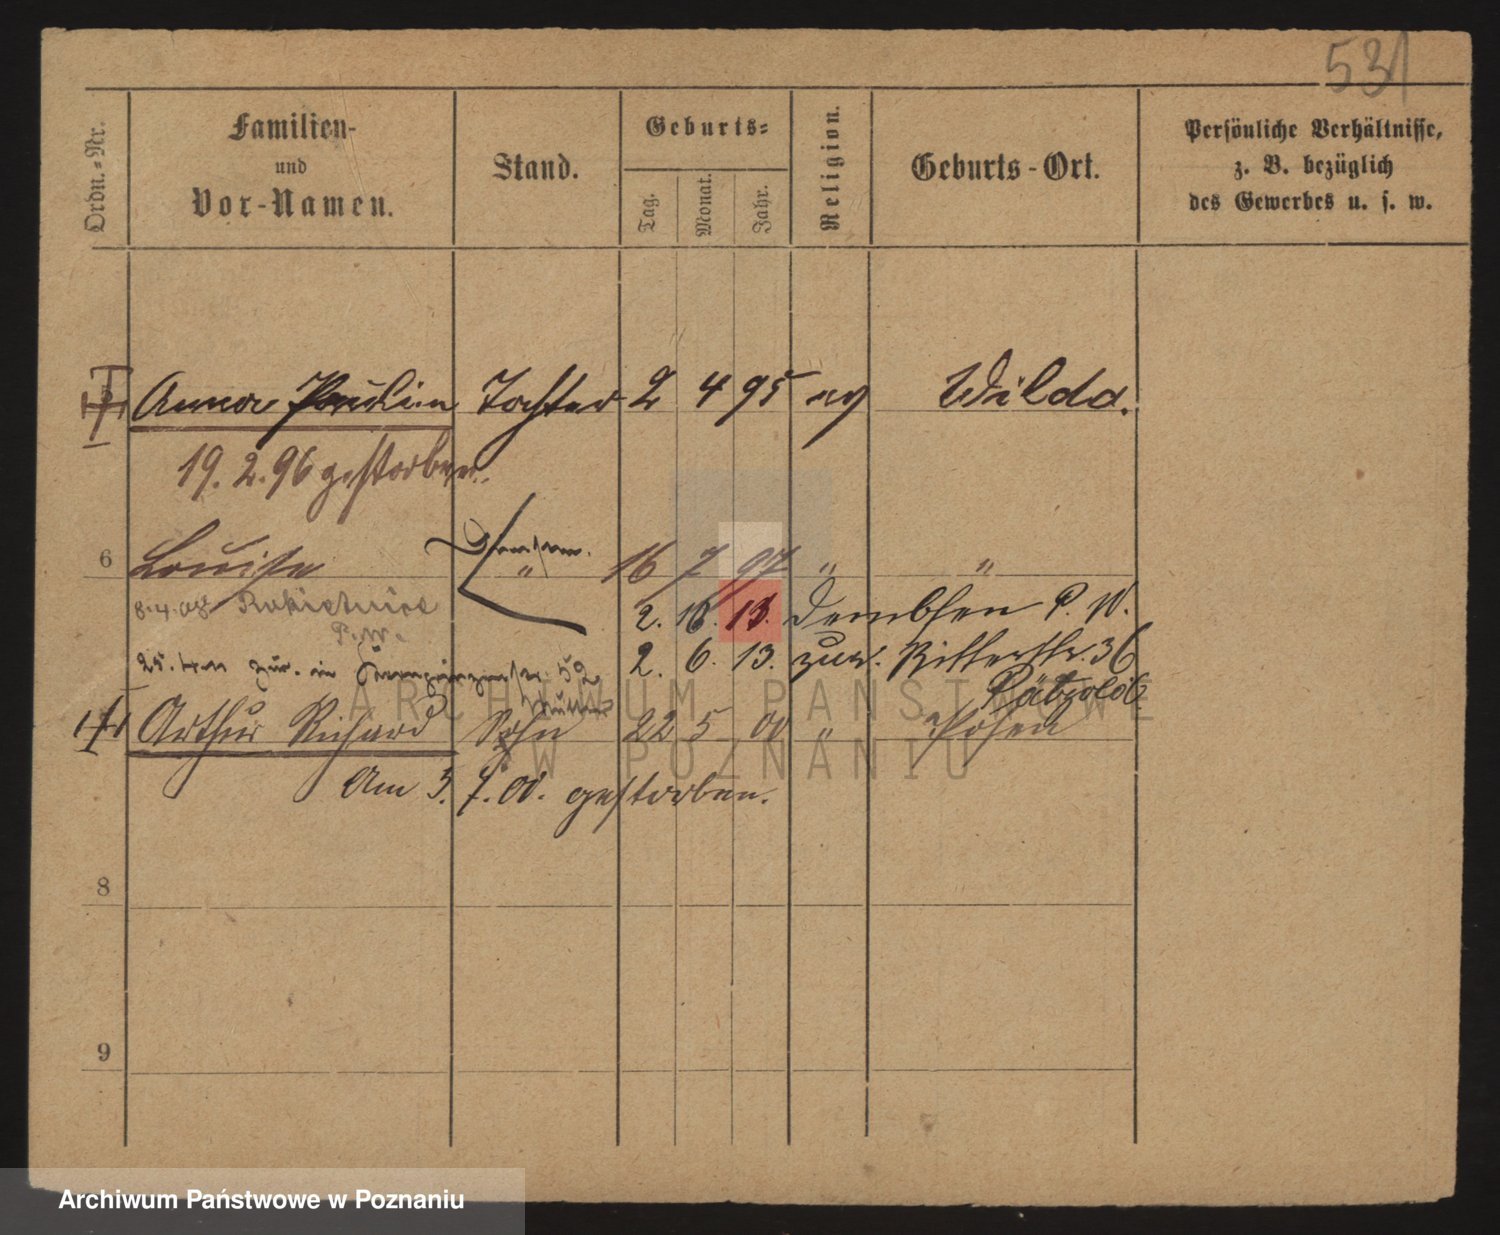 531
Ordn.-Nr.
Familien-
und
Vor-Namen.
Stand.
Geburts-
Tag.
Monat.
Jahr.
Religion.
Geburts-Ort.
Persönliche Verhältnisse,
z. B. bezüglich
des Gewerbes u. s. w.
Anna Paulin Tochter 2 4 95 ev Wilda.
19.2.96 gestorben.
6 Louise " 16 7 97 " "
8.4.08
P. W. 2. 13. Dembsen P. W.
25. zur. in 52 2. 6. 13. zur. Ritterstr. 36
Pätzold
Arthur Richard Sohn 22 5 00 " Posen
Am 3. 7. 00. gestorben.
8
9
ARCHIWUM PAŃSTWOWE
W POZNANIU
Archiwum Państwowe w Poznaniu